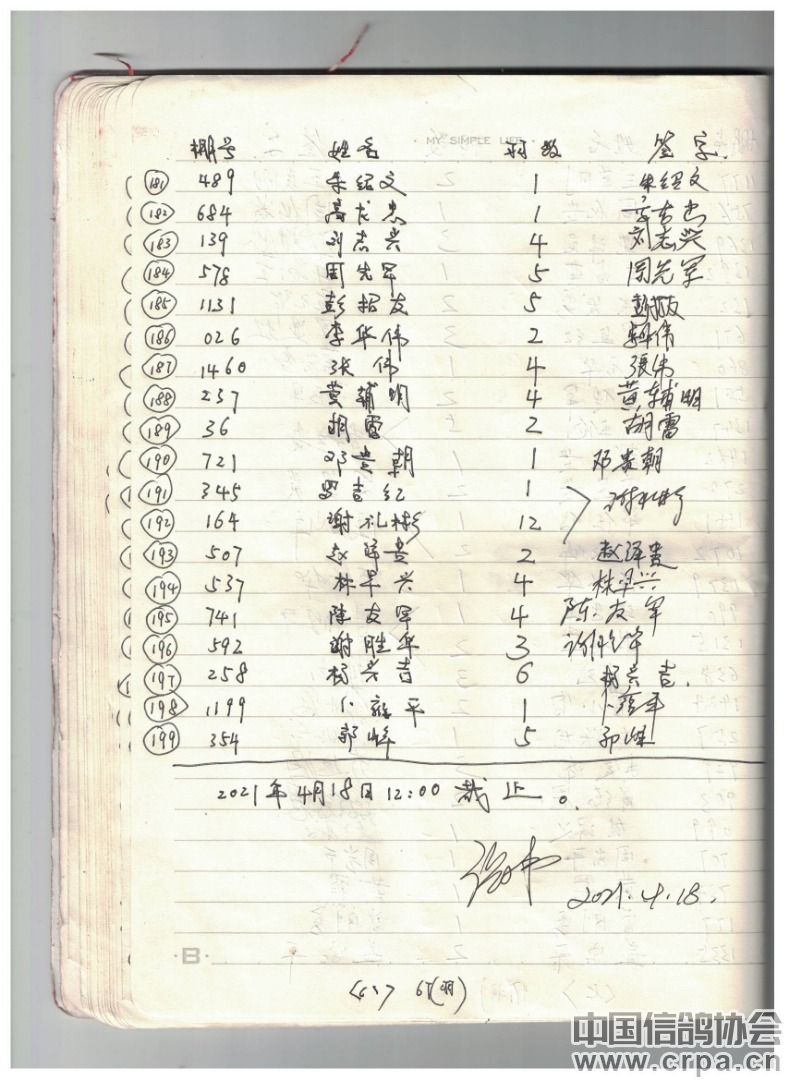 MY SIMPLE LIFE
棚号 姓名 羽数 签字
181 489 朱绍文 1 朱绍文
182 684 高龙忠 1
183 139 刘志兴 4 刘志兴
184 578 周先军 5 周先军
185 1131 彭招友 5
186 026 李华伟 2
187 1460 张伟 4 張伟
188 237 黄辅明 4 黄辅明
189 36 胡雷 2 胡雷
190 721 邓贵朝 1 邓贵朝
191 345 罗吉红 1
192 164 谢礼彬 12 谢礼彬
193 507 赵泽贵 2 赵泽贵
194 537 林早兴 4 林早兴
195 741 陈友军 4 陈友军
196 592 谢胜华 3
197 258 杨兴吉 6 杨兴吉.
198 1199 卜 平 1
199 354 郭峰 5 郭峰
2021年4月18日12:00截止。
2021.4.18.
B
67(羽)
中国信鸽协会
www.crpa.cn